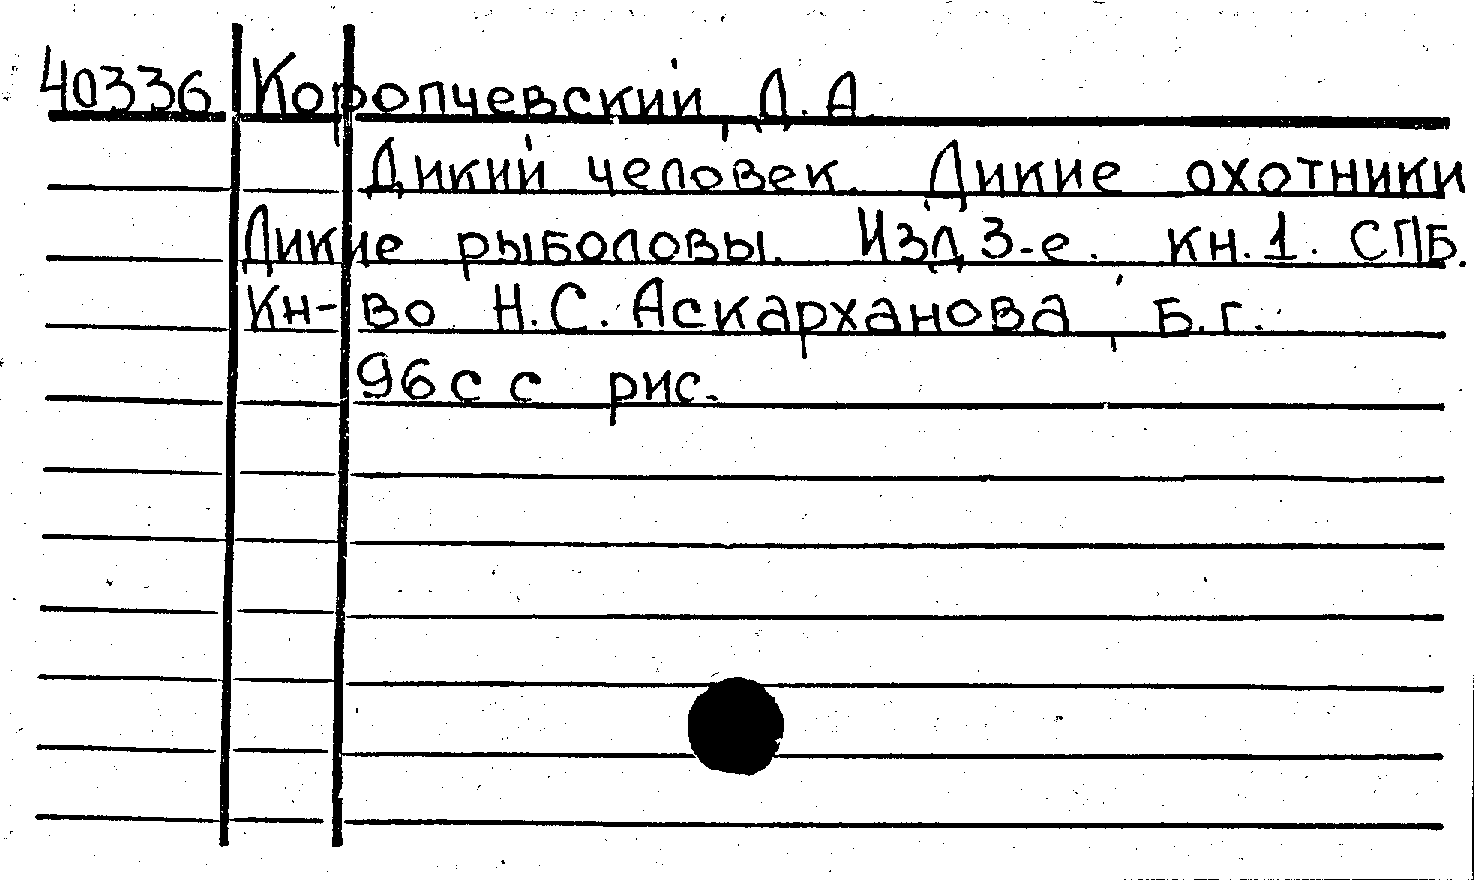 40336 Коропчевский, Д.А.
Дикий человек. Дикие охотники
Дикие рыболовы. Изд 3-е. кн.1. СПБ.
Кн-во Н.С.Аскарханова, Б.г.
96с с рис.